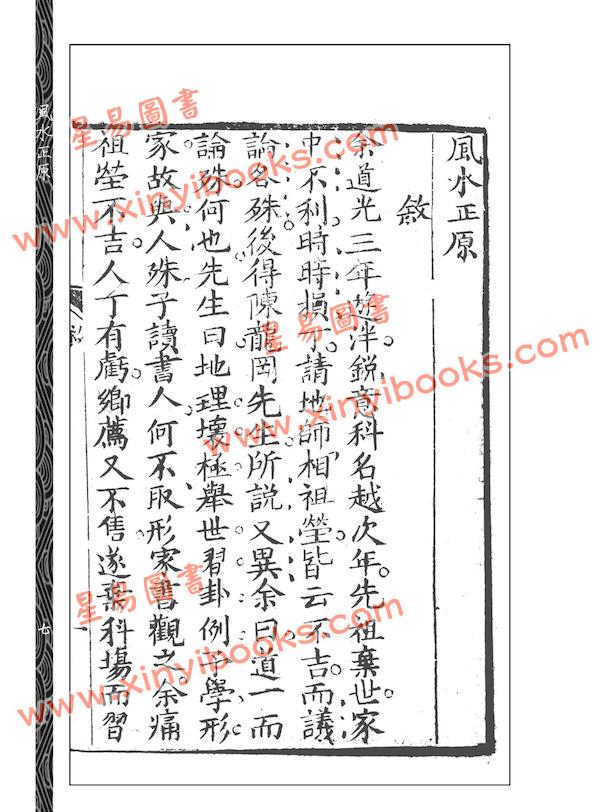 風水正原
敘
余道光三年遊泮銳意科名越次年先祖棄世家
中不利時時損丁請地師相祖塋皆云不吉而議
論各殊後得陳龍岡先生所說又異余曰道一而
論殊何也先生曰地理壞極舉世習卦例予學形
家故與人殊子讀書人何不取形家書觀之余痛
祖塋不吉人丁有虧鄉薦又不售遂棄科場而習
風水正原
七
星易圖書
www.xinyibooks.com
星易圖書
www.xinyibooks.com
星易圖書
www.xinyibooks.com